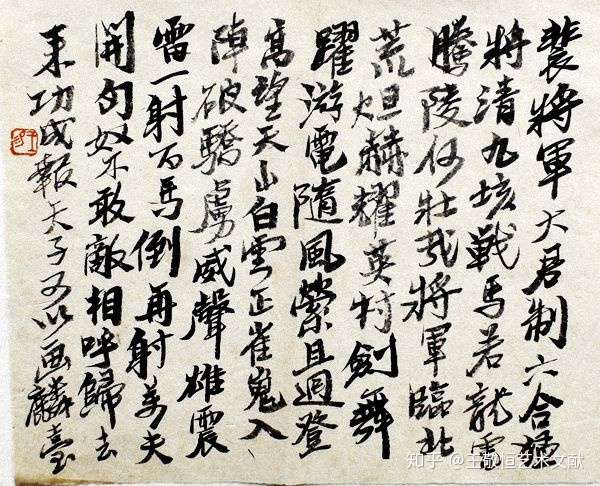 裴將軍大君制六合猛
將清九垓戰馬若龍虎
騰陵何壯哉將軍臨北
荒烜赫耀英材劍舞
躍游電隨風縈且迴登
高望天山白雲正崔嵬入
陣破驕虜威聲雄震
雷一射百馬倒再射萬夫
開匈奴不敢敵相呼歸去
來功成報天子可以畫麟臺
知乎 @王敬恒艺术文献